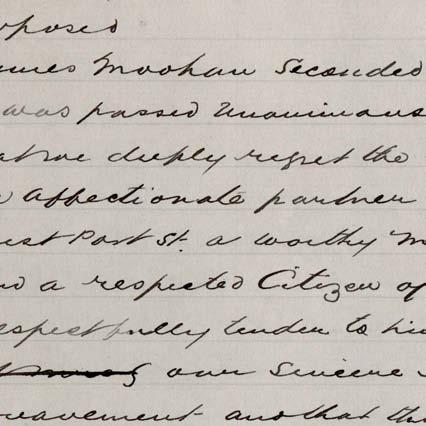 oposed
ames Moohan Seconded
was passed Unanimous
at we deeply regret the
affectionate partner
est Port St. a worthy M
nd a respected Citizen of
espectfully tender to hi
our Sincere
reavement and that th